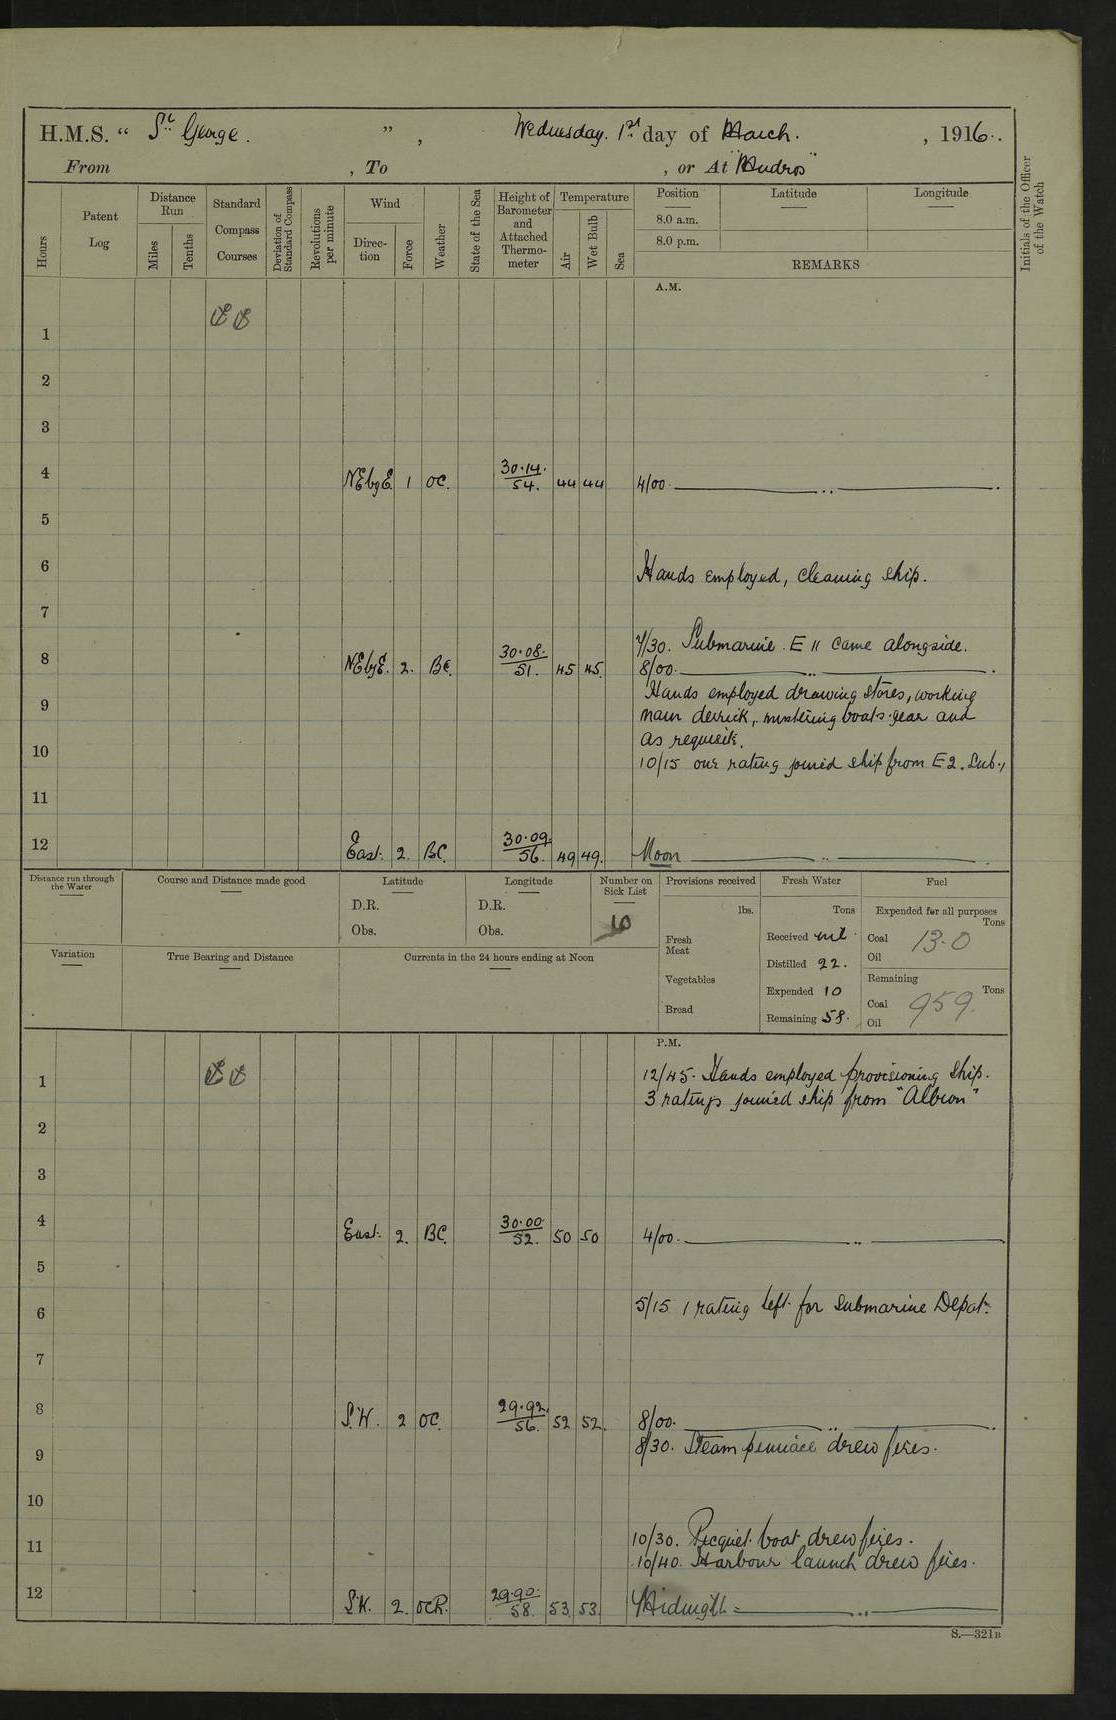 H.M.S. " St George. " , Wednesday. 1st day of March. , 1916.
From , To , or At "Mudros"
Hours
Patent Log
Distance Run
Miles
Tenths
Standard Compass Courses
Deviation of Standard Compass
Revolutions per minute
Wind
Direc-tion
Force
Weather
State of the Sea
Height of Barometer and Attached Thermo-meter
Temperature
Air
Wet Bulb
Sea
Position
Latitude
Longitude
8.0 a.m.
8.0 p.m.
REMARKS
Initials of the Officer of the Watch
A.M.
1
2
3
4 NEbyE 1 OC. 30.14. 54. 44 44 4/00.
5
6 Hands employed, cleaning ship.
7
7/30. Submarine. E 11 came alongside.
8 NEbyE. 2. BC. 30.08. 51. 45 45. 8/00.
Hands employed drawing stores, working
9 main derrick, mustering boats gear and
as requisite.
10 10/15 one rating joined ship from E2. Sub.,
11
12 East. 2. BC. 30.09. 56. 49 49. Noon
Distance run through the Water
Course and Distance made good
Latitude
D.R.
Obs.
Longitude
D.R.
Obs.
Number on Sick List
10
Provisions received
lbs.
Fresh Meat
Vegetables
Bread
Fresh Water
Tons
Received nil.
Distilled 22.
Expended 10
Remaining 58.
Fuel
Expended for all purposes
Tons
Coal 13.0
Oil
Remaining
Tons
Coal 959.
Oil
Variation
True Bearing and Distance
Currents in the 24 hours ending at Noon
P.M.
1 12/45. Hands employed provisioning ship.
3 ratings joined ship from "Albion"
2
3
4 East. 2. BC. 30.00. 52. 50 50 4/00.
5
6 5/15 1 rating left for submarine Depot.
7
8 S.W. 2 OC. 29.92. 56. 52 52. 8/00.
8/30. Steam pinnace drew fires.
9
10
11 10/30. Picquet boat drew fires.
10/40. Harbour launch drew fires.
12 S.W. 2. OCR. 29.90. 58. 53. 53. Midnight
S.—321B